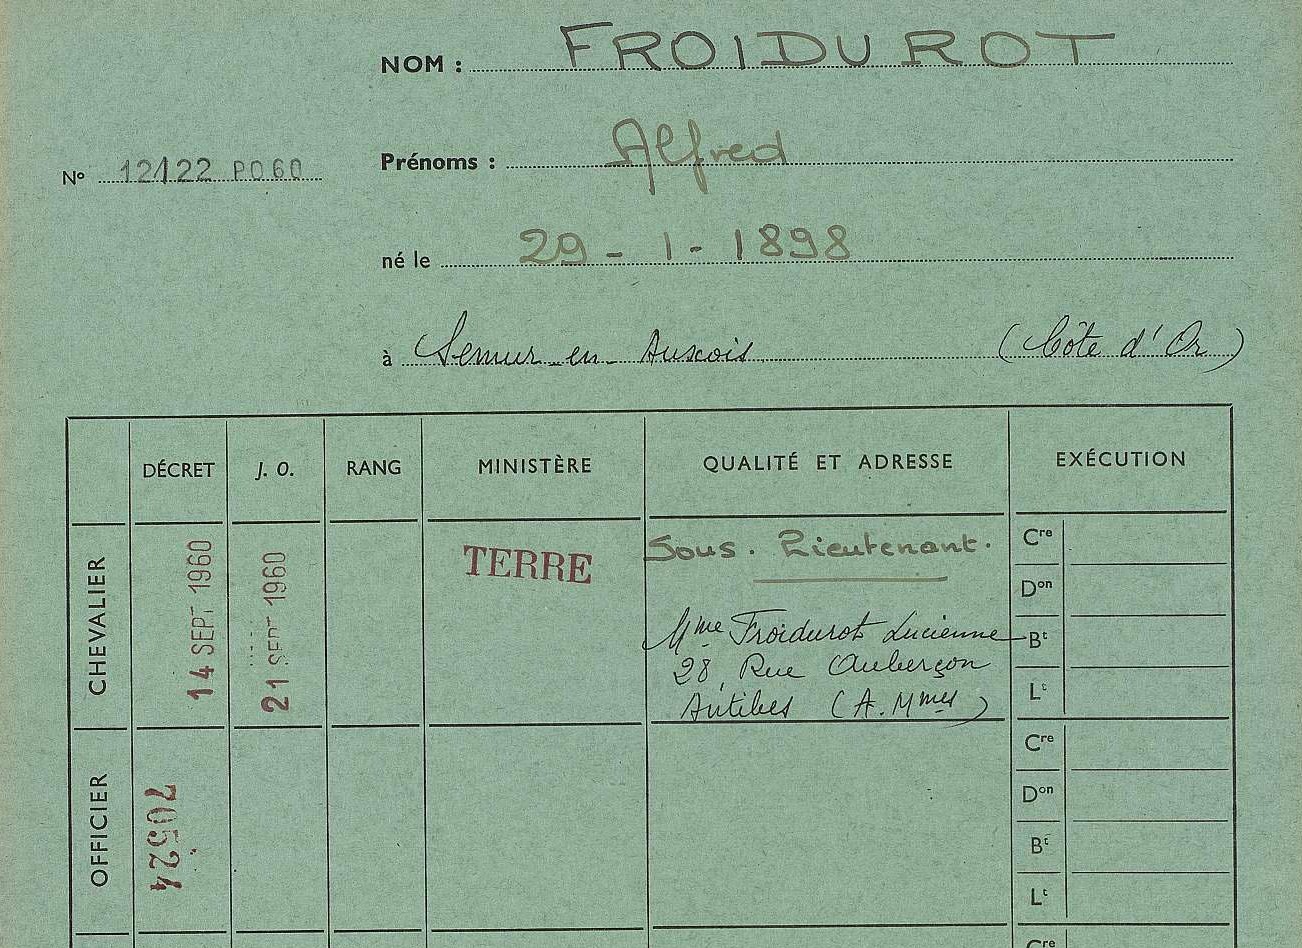 NOM : FROIDUROT
Prénoms : Alfred
N° 12122 PO60
né le 29 - 1 - 1898
à Semur en Auxois (Côte d'Or)
DÉCRET J. O. RANG MINISTÈRE QUALITÉ ET ADRESSE EXÉCUTION
CHEVALIER
14 SEPT 1960
21 SEPT 1960
TERRE
Sous. Lieutenant.
Mme Froidurot Lucienne
28, Rue Auberçon
Antibes (A. Mmes)
Cre
Don
Bt
Lt
OFFICIER
70524
Cre
Don
Bt
Lt
Cre